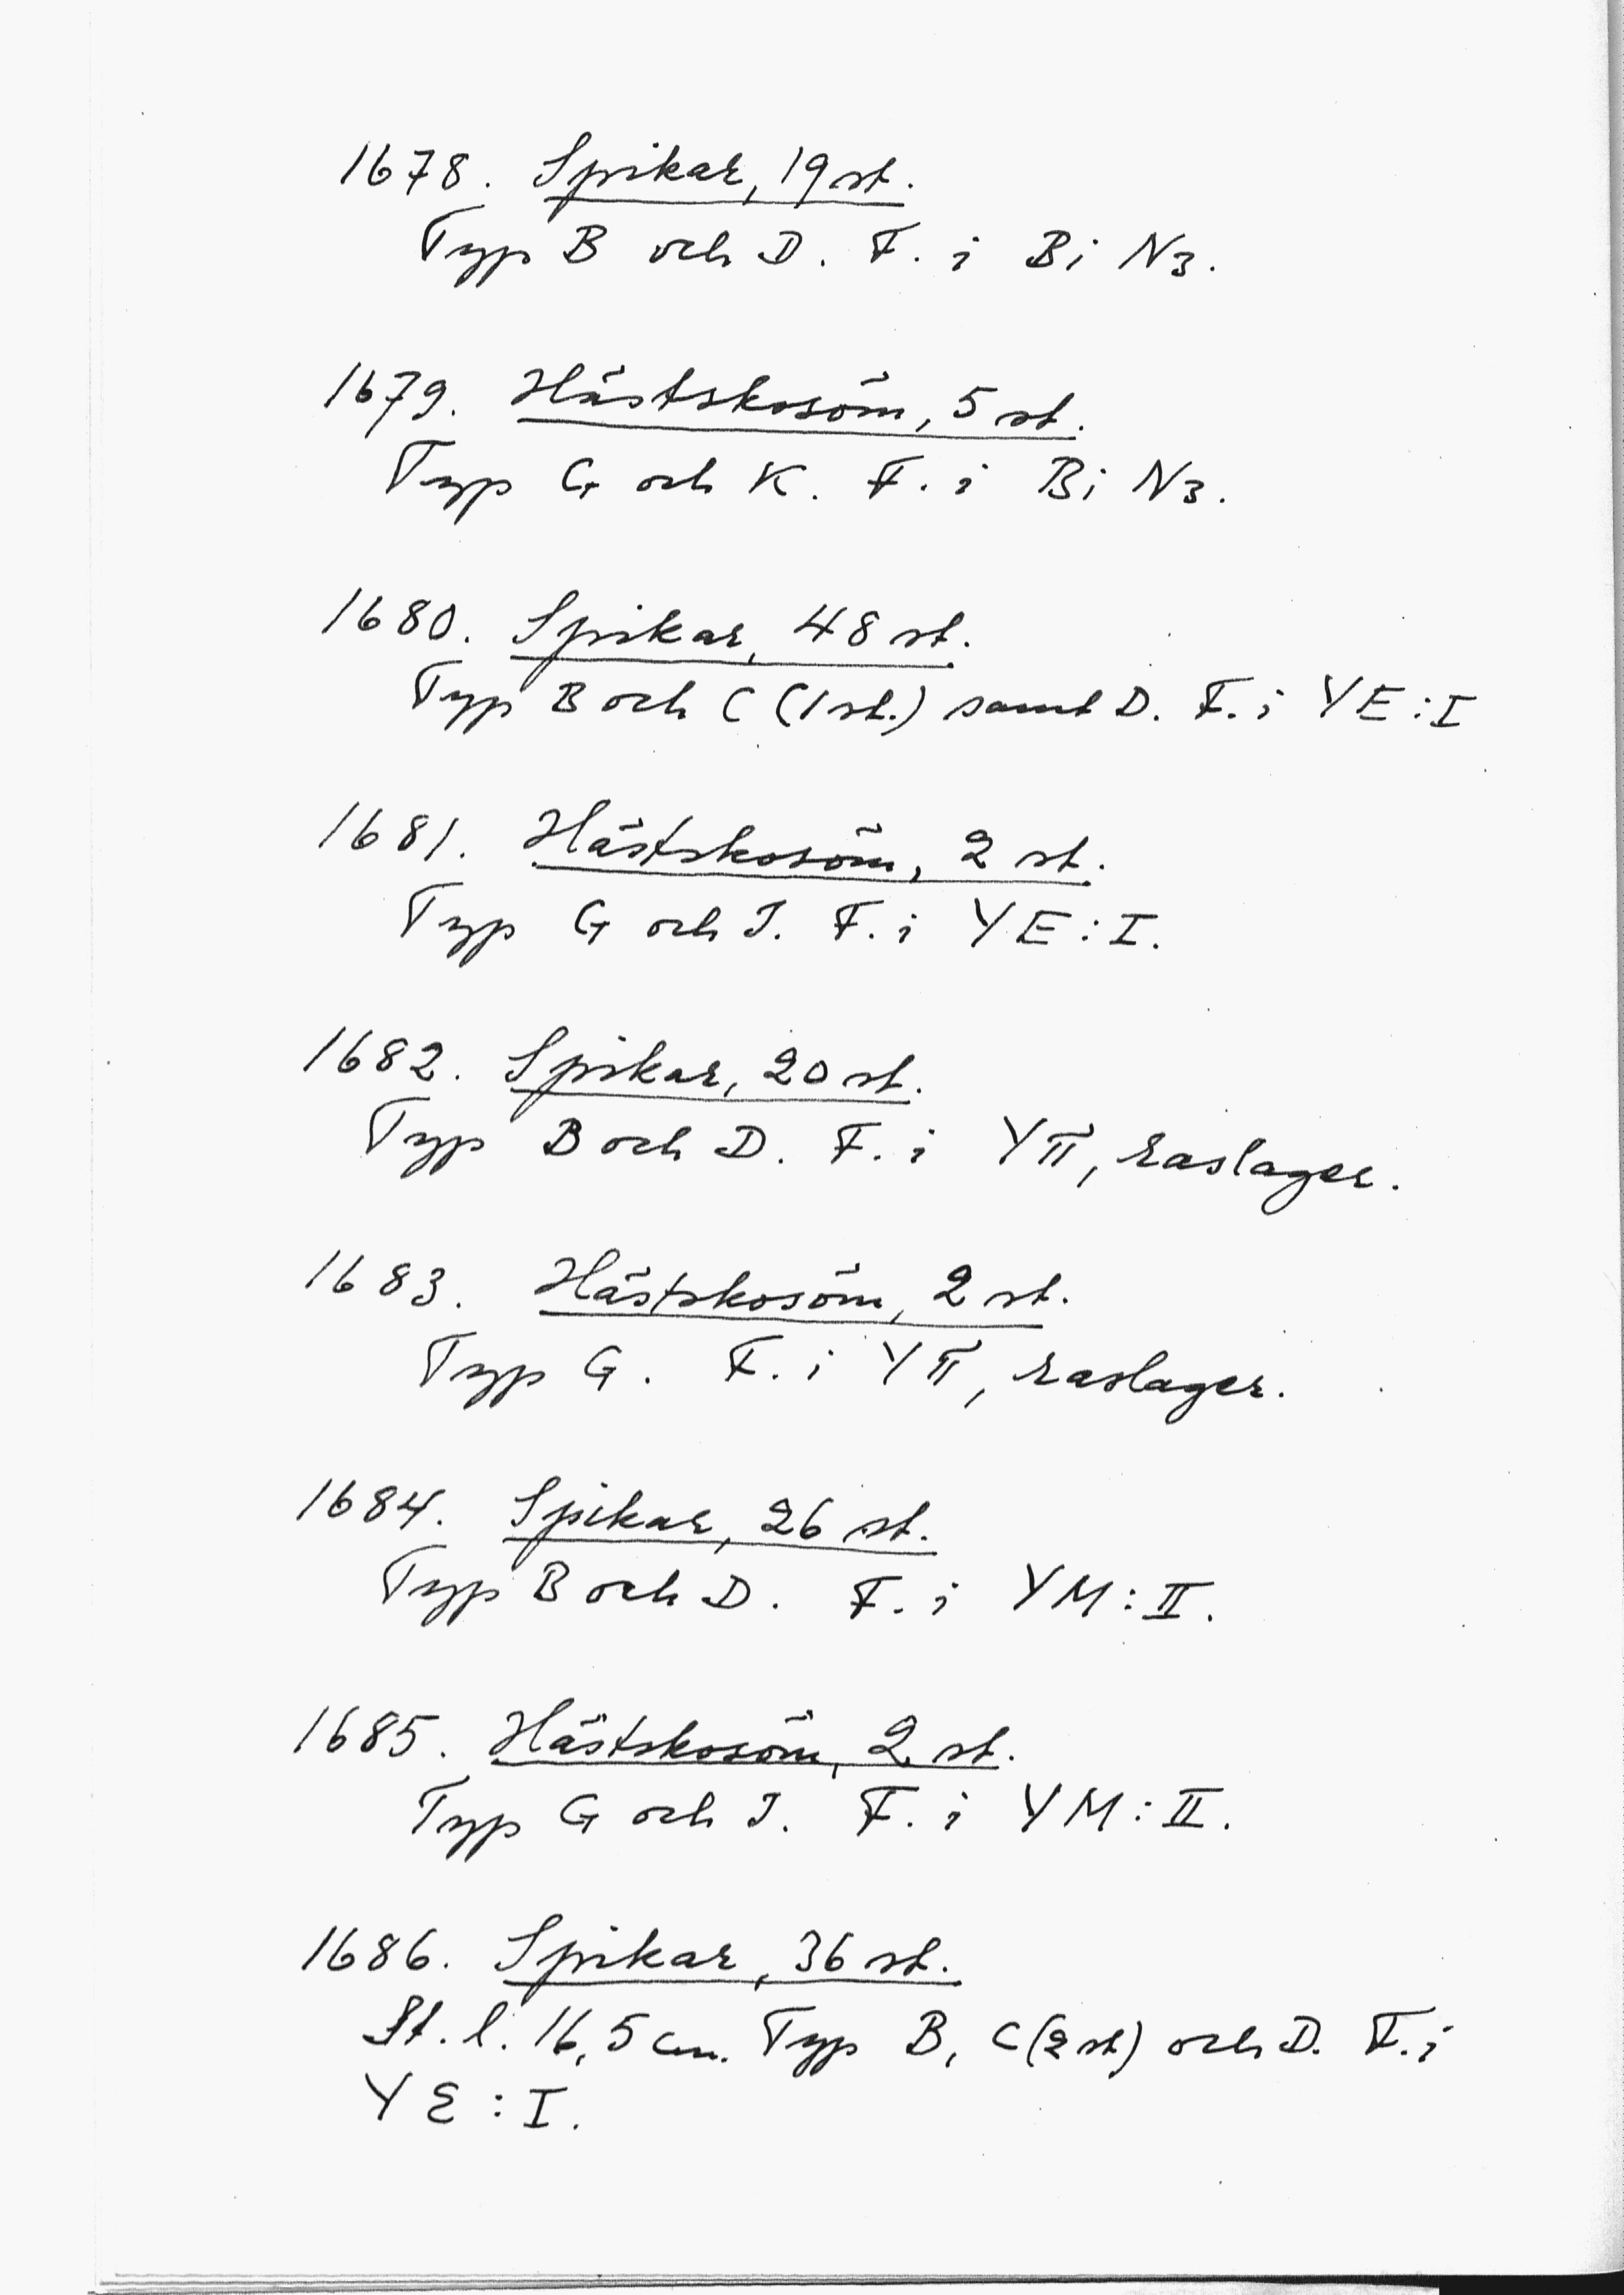 1678. Spikar, 19 st.
Typ B och D. F. i Bi N3.
1679. Hästskosöm, 5 st.
Typ G och K. F. i Bi N3.
1680. Spikar, 48 st.
Typ B och C (1 st.) samt D. F. i YE:I
1681. Hästskosöm, 2 st.
Typ G och J. F. i YE:I.
1682. Spikar, 20 st.
Typ B och D. F. i Yπ, raslager.
1683. Hästskosöm, 2 st.
Typ G. F. i Yπ, raslager.
1684. Spikar, 26 st.
Typ B och D. F. i YM:II.
1685. Hästskosöm, 2 st.
Typ G och J. F. i YM:II.
1686. Spikar, 36 st.
St. l. 16,5 cm. Typ B, C (2 st) och D. F. i
YE:I.